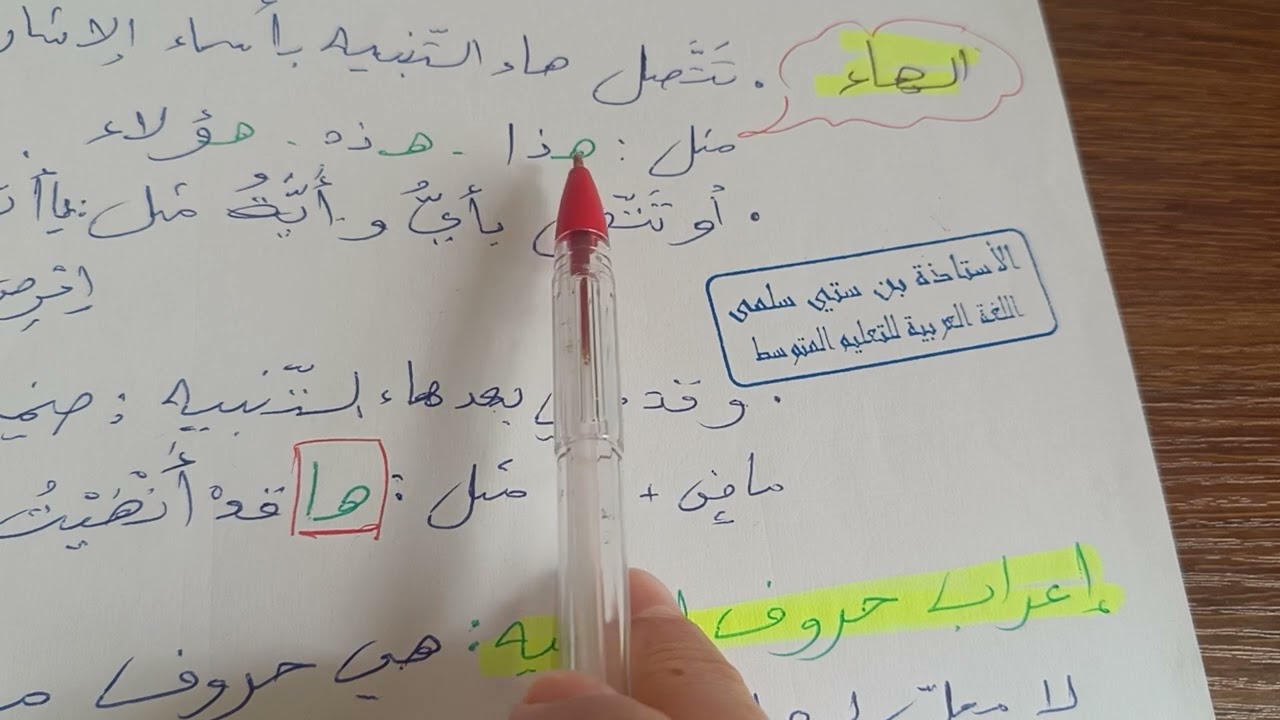 الهاء
. تَتَّصل هاء التّنبيه بأسماء الإشار
مثل : هذا - هذه - هؤلاء .
. أو بأيُّ و أيَّةُ مثل : يا أ
الأستاذة بن ستي سلمى
اللغة العربية للتعليم المتوسط
. وقد بعد هاء التّنبيه : ضمي
ماضٍ + مثل : ها قدْ أَنْهَيْتُ
إعراب حروف : هي حروف
لا محلّ لها